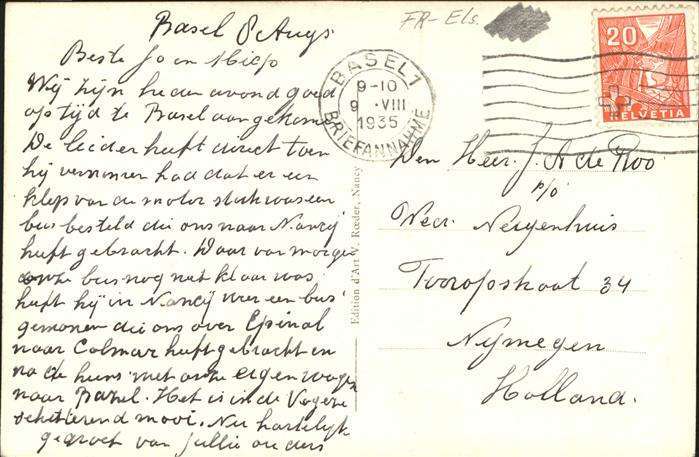 Basel 8 Aug.
Beste Jo en Miep
Wij zijn hedenavond goed
op tijd te Basel aangekomen
De leider heeft direct toen
hij vernomen had dat er een
klep van de motor stuk was een
bus besteld die ons naar Nancij
heeft gebracht. Daar van morgen
onze bus nog niet klaar was
heeft hij in Nancij weer een bus
genomen die ons over Epinal
naar Colmar heeft gebracht en
na de met onze eigen wagen
naar Basel. Het is in de Vogeze
schitterend mooi. Nu hartelijk
gegroet van jullie ouders
FR- Els.
BASEL 1
9-10
9. VIII
1935
BRIEFANNAHME
20
HELVETIA
Edition d'Art V. Rœder, Nancy
Den Heer J. A de Roo
p/o
Wed. Neijenhuis
Tooropstraat 34
Nijmegen
Holland.